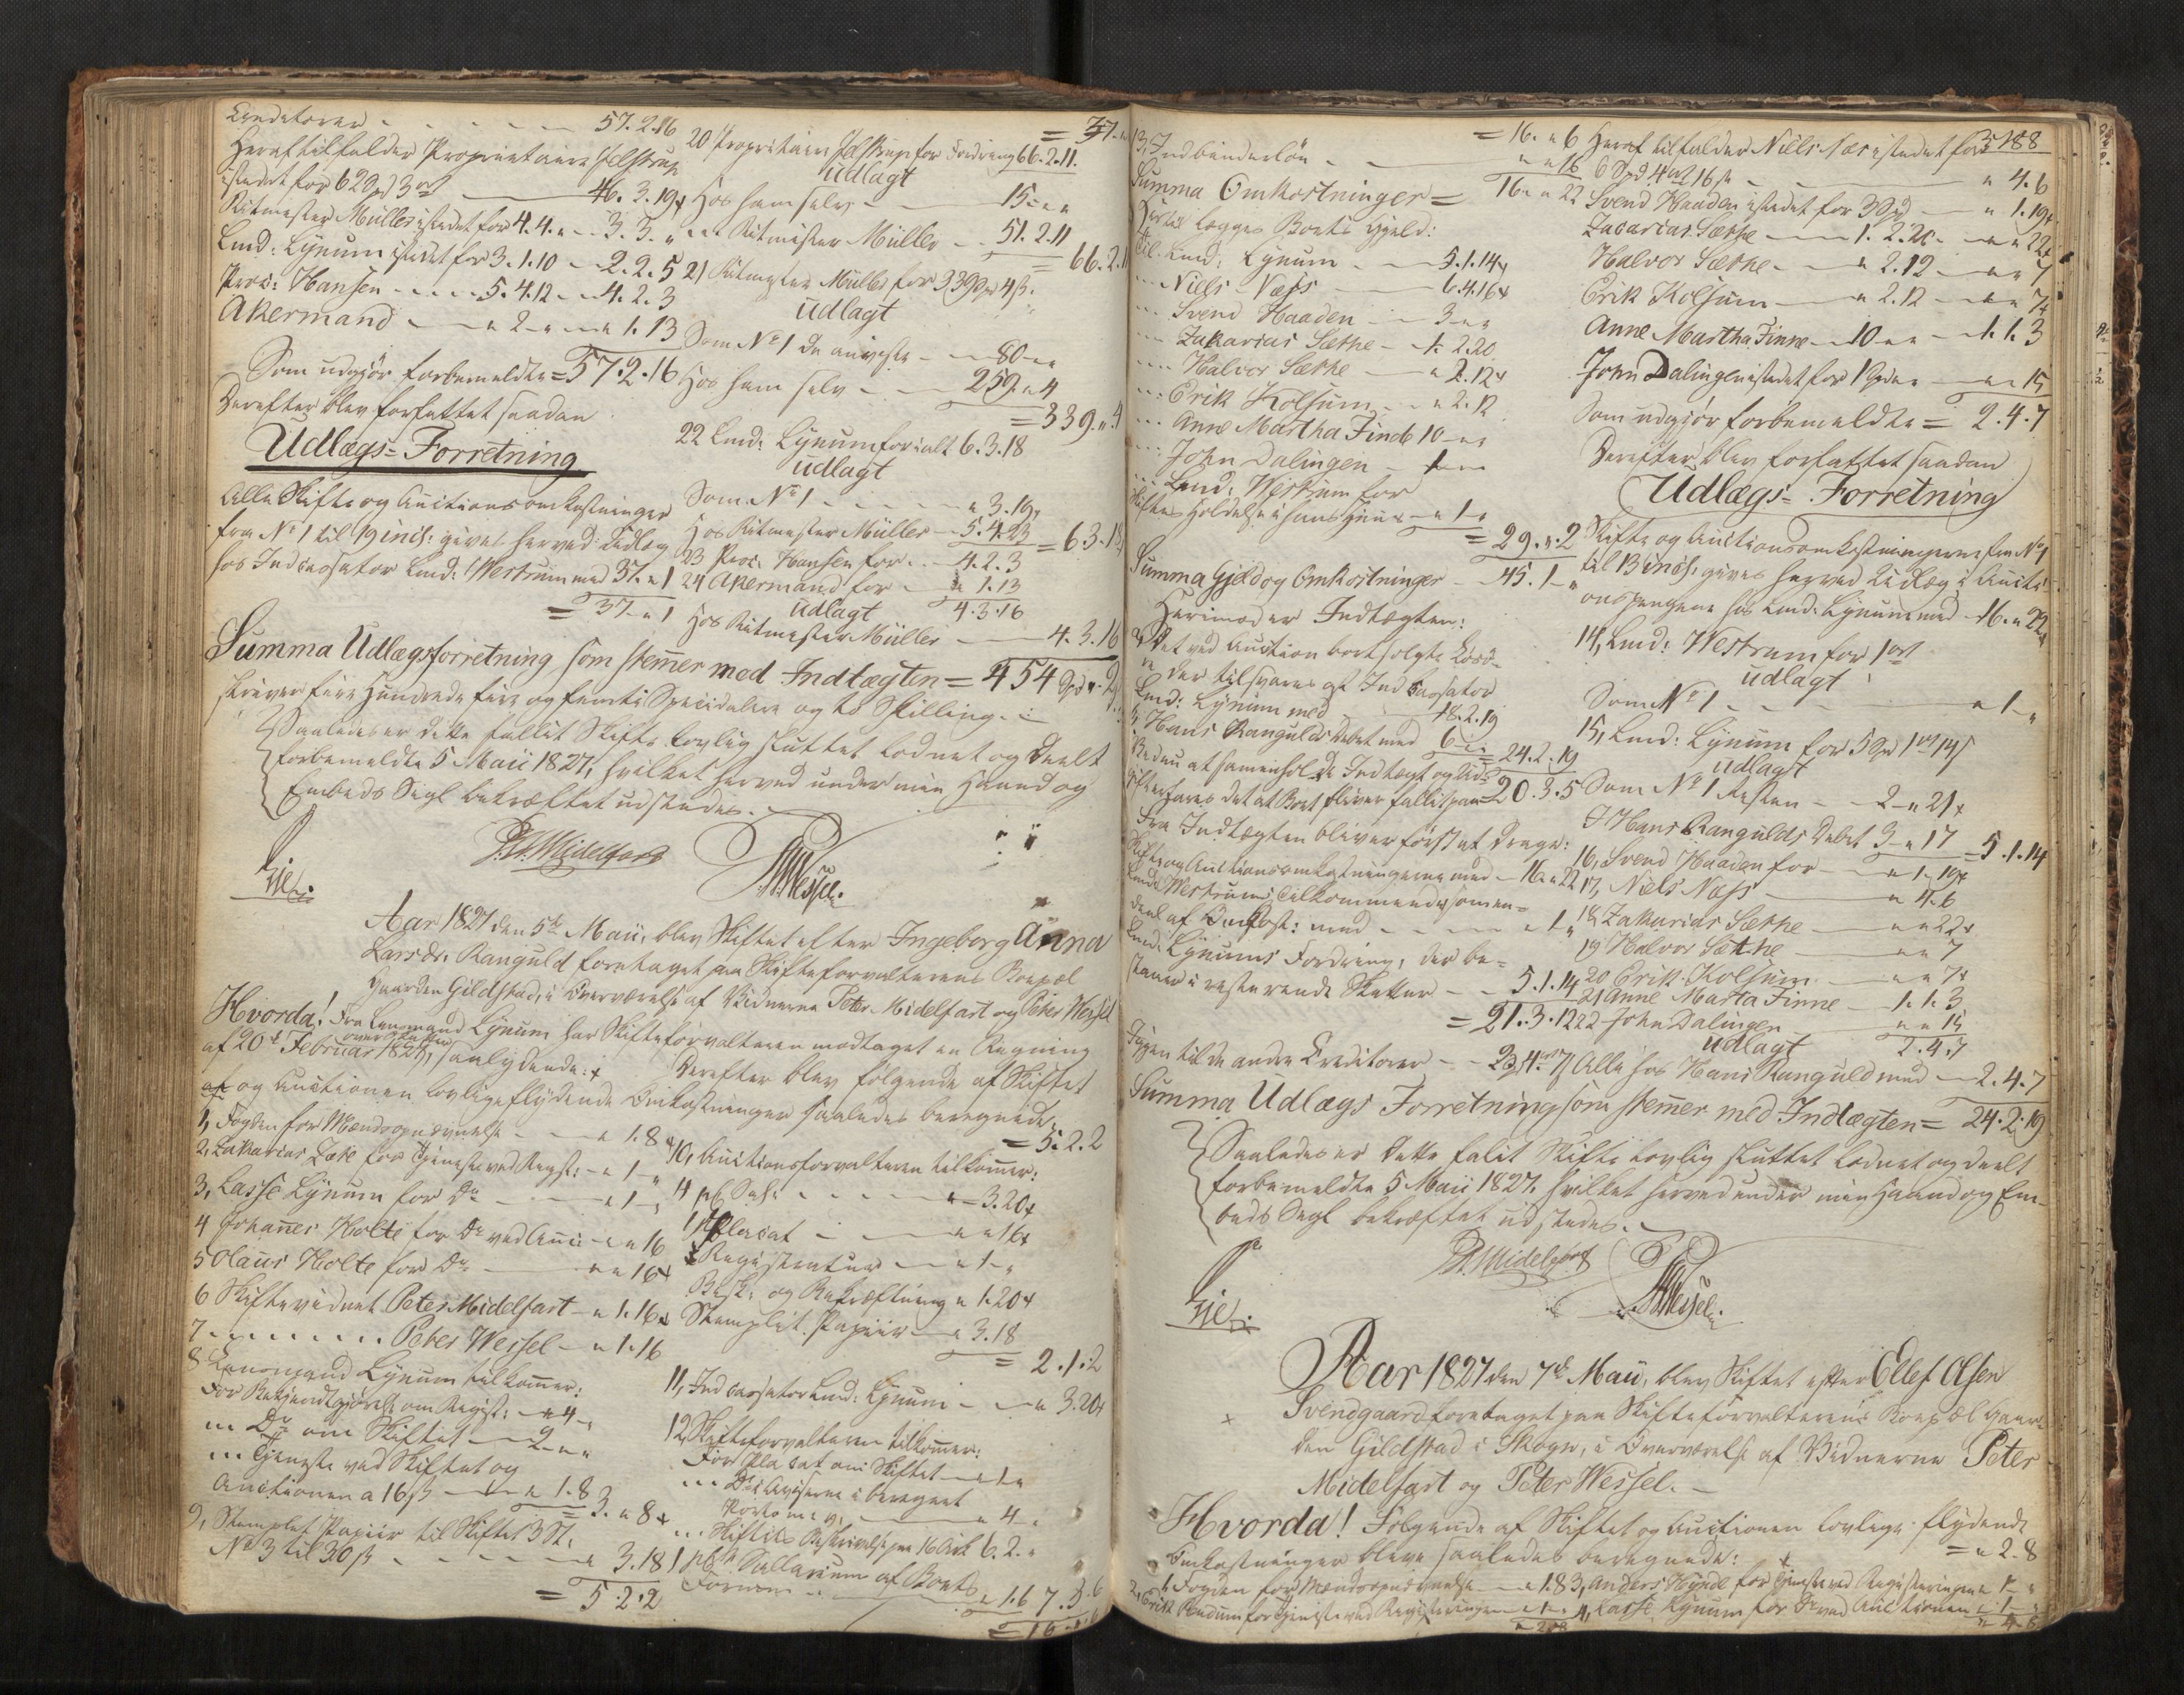 Creditorer - - - - - 57.2.16
Heraf tilfalder Proprietaire Jelstrup
istedet for 62 Spd 3 ort - 46.3.19
Ritmester Müller istedet for 4.4.„ - 3.3.„
Lmd: Lynum istedet for 3.1.10 - 2.2.5
Proc: Hansen - - - 5.4.12 - 4.2.3
Akermand - „ 2 - „ - „ 1.13
Som udgjør forbemeldte = 57.2.16
Derefter blev forfattet saadan
Udlægs=Forretning
Alle Skifte og Auctionsomkostninger
fra No 1 til 19 incl: gives herved Udlæg
hos Incassator Lmd: Westrum med 37.„1
= 37.„1
20 Proprietair Jelstrup for Fordring 66.2.11.
Udlagt
Hos ham selv - - 15 - „
Ritmester Müller - 51.2.11
= 66.2.11
21 Ritmester Müller for 339 Spd 4 ß.
Udlagt
Som No 1 - 80 - „
Hos ham selv - - 259 „ 4
= 339.„.4
22 Lmd: Lynum for ialt 6.3.18
Udlagt
Som No 1 - - - „ 3.19
Hos Ritmester Müller - 5.4.23
= 6.3.18
23 Proc. Hansen for - 4.2.3
24 Akermand for - „ 1.13
Udlagt 4.3.16
Hos Ritmester Müller - 4.3.16
Summa Udlægsforretning som stemer med Indtægten = 454 Spd „ 2
skriver fire Hundrede fire og femti Speciedaler og to Skilling.
Saaledes er dette fallit Skifte lovlig sluttet lodnet og deelt
forbemeldte 5 Maii 1827, hvilket herved under min Haand og
Embeds Segl bekræftet udstedes.
P. Midelfart
Wessel.
Aar 1827 den 5te Maii, blev Skiftet efter Ingeborg Anna
Larsdr. Ranguld foretaget paa Skifteforvalterens Boepæl
Gaarden Gildstad, i Overværelse af Vidnerne Peter Midelfart og Peter Wessel
Hvorda! Fra Lensmand Lynum har Skifteforvalteren modtaget en Regning
af 20de Februar 1827, saalydende:
Derefter blev følgende af Skiftet
og Auctionen lovlige flydende Omkostninger saaledes beregnede:
1, Fogden for Mændsopnævnelse - - „ 1.8
2, Zakarias for Tjeneste ved Regst: - „ 1 - „
3, Lasse Lynum for Do - „ 1 - „
4 Johanes Holte for Do ved Auc: - „ „ 16
5 Olaus Holte for Do - „ „ 16
6 Skiftevidnet Peter Midelfart - „ 1.16
7 - - - - Peter Wessel - „ 1.16
8 Lensmand Lynum tilkomer:
For Bekjendtgjørelse om Regist: - „ 4 -
Do om Skiftet - 2 - „
Tjeneste ved Skiftet og
Auctionen a 16 ß - „ 1.8
= 3.„ 8
9, Stemplet Papiir til Skiftet 3 St:
No 3 til 30 ß - - - „ 3.18
= 5.2.2
= 5.2.2
10, Auctionsforvalteren tilkomer:
4 pCt Sal: - - - „ 3.20
Placat - - „ „ 16
Registratur - „ 1 - „
Besk: og Bekræftning „ 1.20
Stemplet Papiir - „ 3.18
= 2.1.2
11, Incassator Lmd: Lynum - - „ 3.20
12, Skifteforvalteren tilkomer:
For Placat om Skiftet - „ 1 „
Do i Aviserne i beregnet
Porto m.v. - „ 4 „
Skiftets Beskrivelse paa 16 Ark 6.2.„
1 pCt Sallarium af Boets
Formue - „ 1.6
13, Indbinderløn - „ „ 16
Summa Omkostninger = 16 „ „ 22
Hertil lægges Boets Gjeld:
Til Lmd: Lynum - 5.1.14
Niels Næss - 6.4.16
Svend Haaden - 3 - „
Zakarias Sæthe - 1.2.20
Halvor Sæthe - „ 2.12
Erik Kolsum - „ 2.12
Anne Martha Finde 10 - „
John Dalingen - 1 - „
Lmd: Westrum for
Skiftes Holdelse i hans Huus - „ 1 „
= 29.„.2
Summa Gjeld og Omkostninger - 45.1 - „
Herimod er Indtægten:
Det ved Auction bortsolgte Løsøre
der tilsvares af Incassator
Lmd: Lynum med - 18.2.19
Hans Ranguld Debet med 6 - „
= 24.2.19
Ved nu at samenholde Indtægt og Udgift
erfares det at Boet bliver fallit paa 20.3.5
Fra Indtægten bliver først at drage:
Skifte og Auctionsomkostningerne med - 16.„22
Lmd: Westrums Tilkommende som en
deel af Omkost: med - - - „ 1 „
Lmd: Lynums Fordring, der be=
staaer i resterende Skatter - - 5.1.14
= 21.3.12
Igjen til de andre Creditorer - - 2 4 7
Summa Udlægs Forretning som stemer med Indtægten = 24.2.19
Saaledes er dette falit Skifte lovlig sluttet lodnet og deelt
forbemeldte 5 Maii 1827, hvilket herved under min Haand og Em=
beds Segl bekræftet udstedes.
188
Heraf tilfalder Niels Næs istedet for
6 Spd 4 ort 16 ß - „ 4.6
Svend Haaden istedet for 3 Spd - „ 1.19
Zacarias Sæthe - 1.2.20 - „ „ 22
Halvor Sæthe - „ 2.12 - „ „ 7
Erik Kolsum - „ 2.12 - „ „ 7
Anne Martha Finne - 10 - „ - 1.1.3
John Dalingen istedet for 1 Spd - „ „ 15
Som udgjør forbemeldte = 2.4.7
Derefter blev forfattet saadan
Udlægs=Forretning
Skifte og Auctionsomkostningerne fra No 1
til 13 incl: gives herved Udlæg i Aucti=
onspengene hos Lmd: Lynum med 16.„22
14, Lmd: Westrum for 1 ort
Udlagt
Som No 1 - - - „ 1 - „
15, Lmd: Lynum for 5 Spd 1 ort 14 ß
Udlagt
Som No 1 Resten - - 2 - „ 21
I Hans Ranguld Debet 3 - „ 17
= 5.1.14
16, Svend Haaden for - „ 1.19
17, Niels Næss - „ 4.6
18 Zakarias Sæthe - „ „ 22
19 Halvor Sæthe - „ „ 7
20 Erik Kolsum - „ „ 7
21 Anne Marta Finne - 1.1.3
22 John Dalingen - „ „ 15
Udlagt 2.4.7
Alle hos Hans Ranguld med - 2.4.7
P. Midelfart
Wessel.
Aar 1827 den 7de Maii, blev Skiftet efter Ellef Olsen
Svendgaard foretaget paa Skifteforvalterens Boepæl Gaar=
den Gildstad i Skogn, i Overværelse af Vidnerne Peter
Midelfart og Peter Wessel.
Hvorda! Følgende af Skiftet og Auctionen lovlige flydende
Omkostninger bleve saaledes beregnede: = „ 2.8
1, Fogden for Mændsopnævnelse - „ 1.8
2, Erik for Tjeneste ved Registreringen - „ 1 - „
3, Anders Hynde for Tjeneste ved Registeringen „ 1 - „
4, Lasse Lynum for Do ved Auctionen „ 1 - „